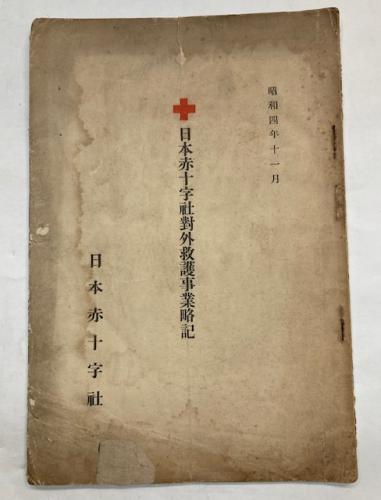 昭和四年十一月
日本赤十字社對外救護事業略記
日本赤十字社